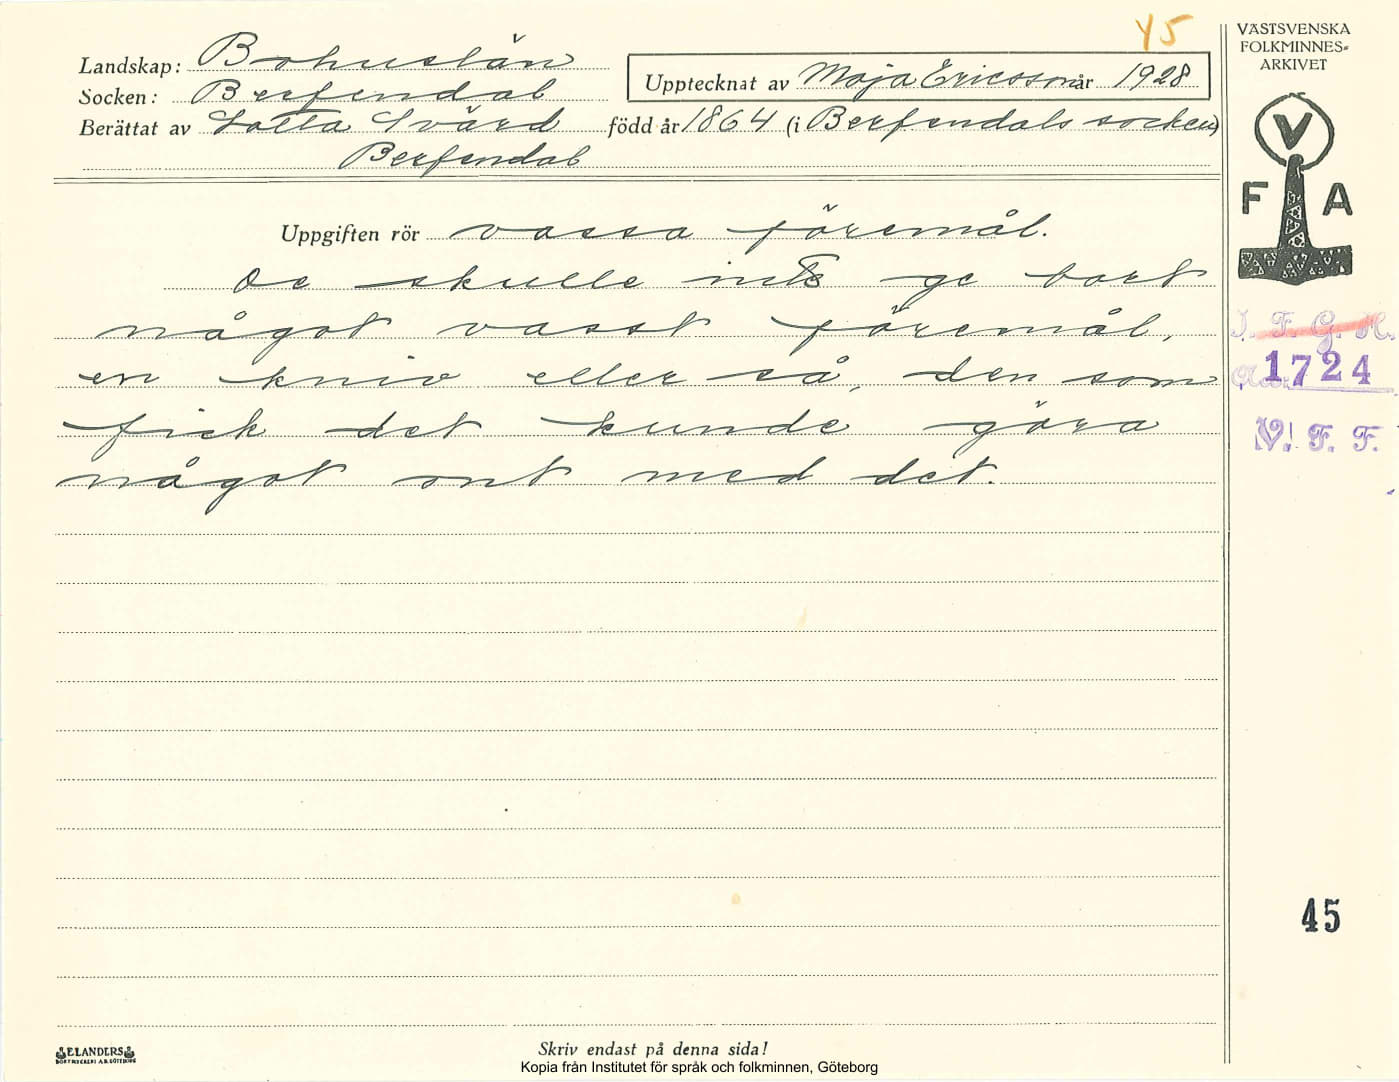 45
VÄSTSVENSKA
FOLKMINNES-
ARKIVET
Landskap: Bohuslän
Socken: Berfendal
Upptecknat av Maja Ericsson år 1928
Berättat av Lotta Svärd född år 1864 (i Berfendals socken)
Berfendal
V
F A
Uppgiften rör vassa föremål.
De skulle inte ge bort
något vasst föremål,
en kniv eller så, den som
fick det kunde göra
något ont med det.
I. F. G. H.
Acc. 1724
V. F. F.
45
ELANDERS
BOKTRYCKERI A.B. GÖTEBORG
Skriv endast på denna sida!
Kopia från Institutet för språk och folkminnen, Göteborg